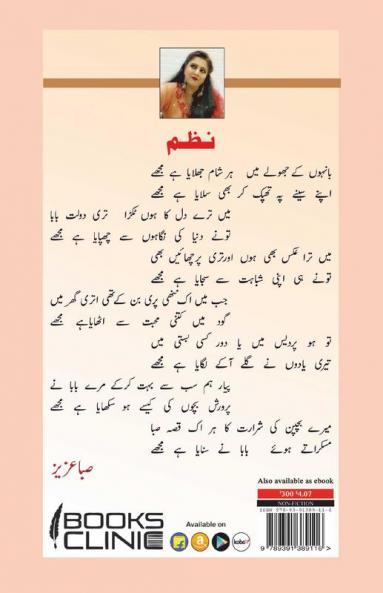 نظم
بانہوں کے جھولے میں ہر شام جھلایا ہے مجھے
اپنے سینے پہ تھپک کر بھی سلایا ہے مجھے
میں ترے دل کا ہوں ٹکڑا تری دولت بابا
تونے دنیا کی نگاہوں سے چھپایا ہے مجھے
میں ترا عکس بھی ہوں اورتری پرچھائیں بھی
تونے ہی اپنی شباہت سے سجایا ہے مجھے
جب میں اک ننھی پری بن کےتھی اتری گھر میں
گود میں کتنی محبت سے اٹھایاہے مجھے
تو ہو پردیس میں یا دور کسی بستی میں
تیری یادوں نے گلے آکے لگایا ہے مجھے
پیار ہم سب سے بہت کرکے مرے بابا نے
پرورش بچوں کی کیسے ہو سکھایا ہے مجھے
میرے بچپن کی شرارت کا ہر اک قصہ صبا
مسکراتے ہوئے بابا نے سنایا ہے مجھے
صبا عزیز
Also available as ebook
₹300 $4.07
NON-FICTION
ISBN 978-93-91389-11-6
BOOKS
CLINIC
Available on
kobo
9 789391 389116 >